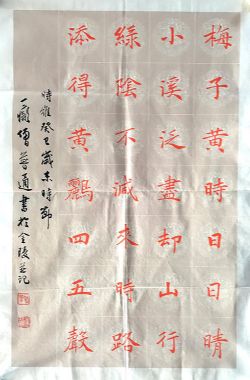 梅子黃時日日晴
小溪泛盡却山行
綠陰不減來時路
添得黃鸝四五聲
時維癸巳歲末時節
僧普通書於金陵並記